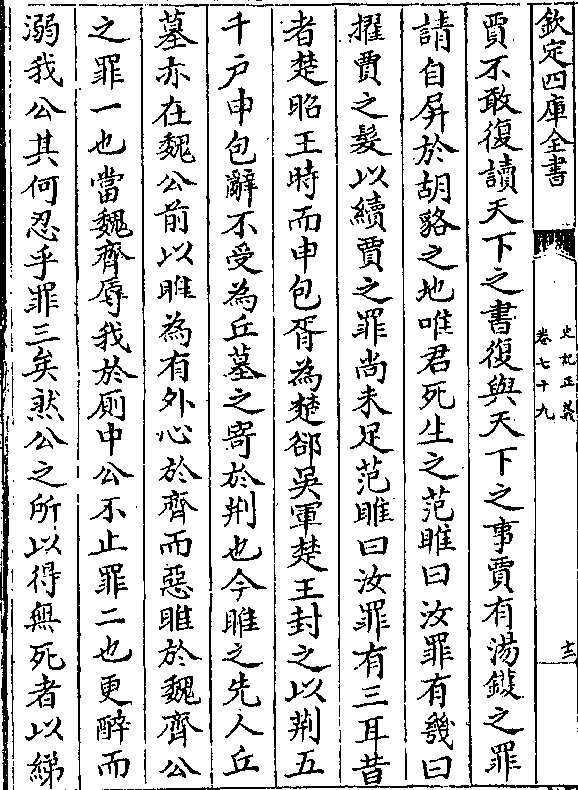 欽定四庫全書
史記正義
卷七十九
十二
賈不敢復讀天下之書復與天下之事賈有湯鑊之罪
請自屏於胡貉之地唯君死生之范睢曰汝罪有幾曰
擢賈之髮以續賈之罪尚未足范睢曰汝罪有三耳昔
者楚昭王時而申包胥為楚郤吳軍楚王封之以荆五
千户申包辭不受為丘墓之寄於荆也今睢之先人丘
墓亦在魏公前以睢為有外心於齊而惡睢於魏齊公
之罪一也當魏齊辱我於厠中公不止罪二也更醉而
溺我公其何忍乎罪三矣然公之所以得無死者以綈